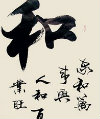 和
家和萬
事興
人和百
業旺